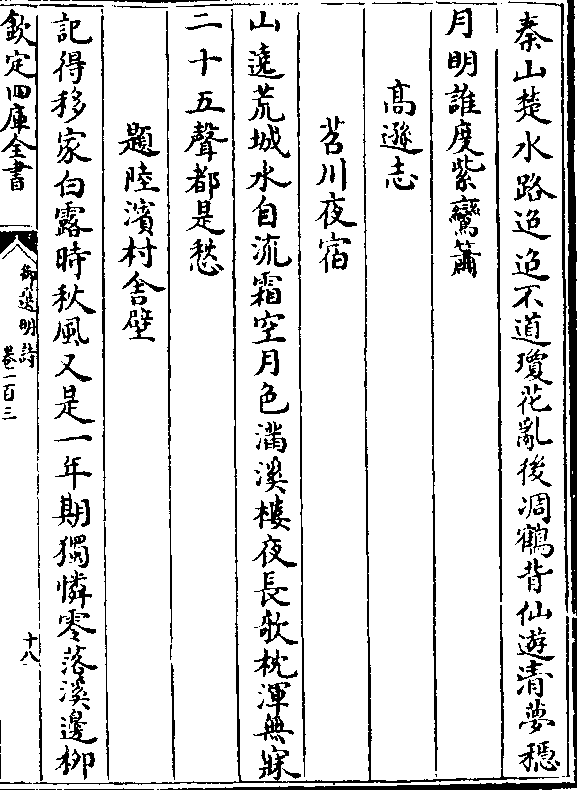 秦山楚水路迢迢不道瓊花亂後凋鶴背仙遊清夢穏
月明誰度紫鸞簫
髙遜志
苕川夜宿
山遶荒城水自流霜空月色滿溪樓夜長欹枕渾無寐
二十五聲都是愁
題陸濱村舎壁
記得移家白露時秋風又是一年期獨憐零落溪邊栁
欽定四庫全書
御選明詩
卷一百三
十八